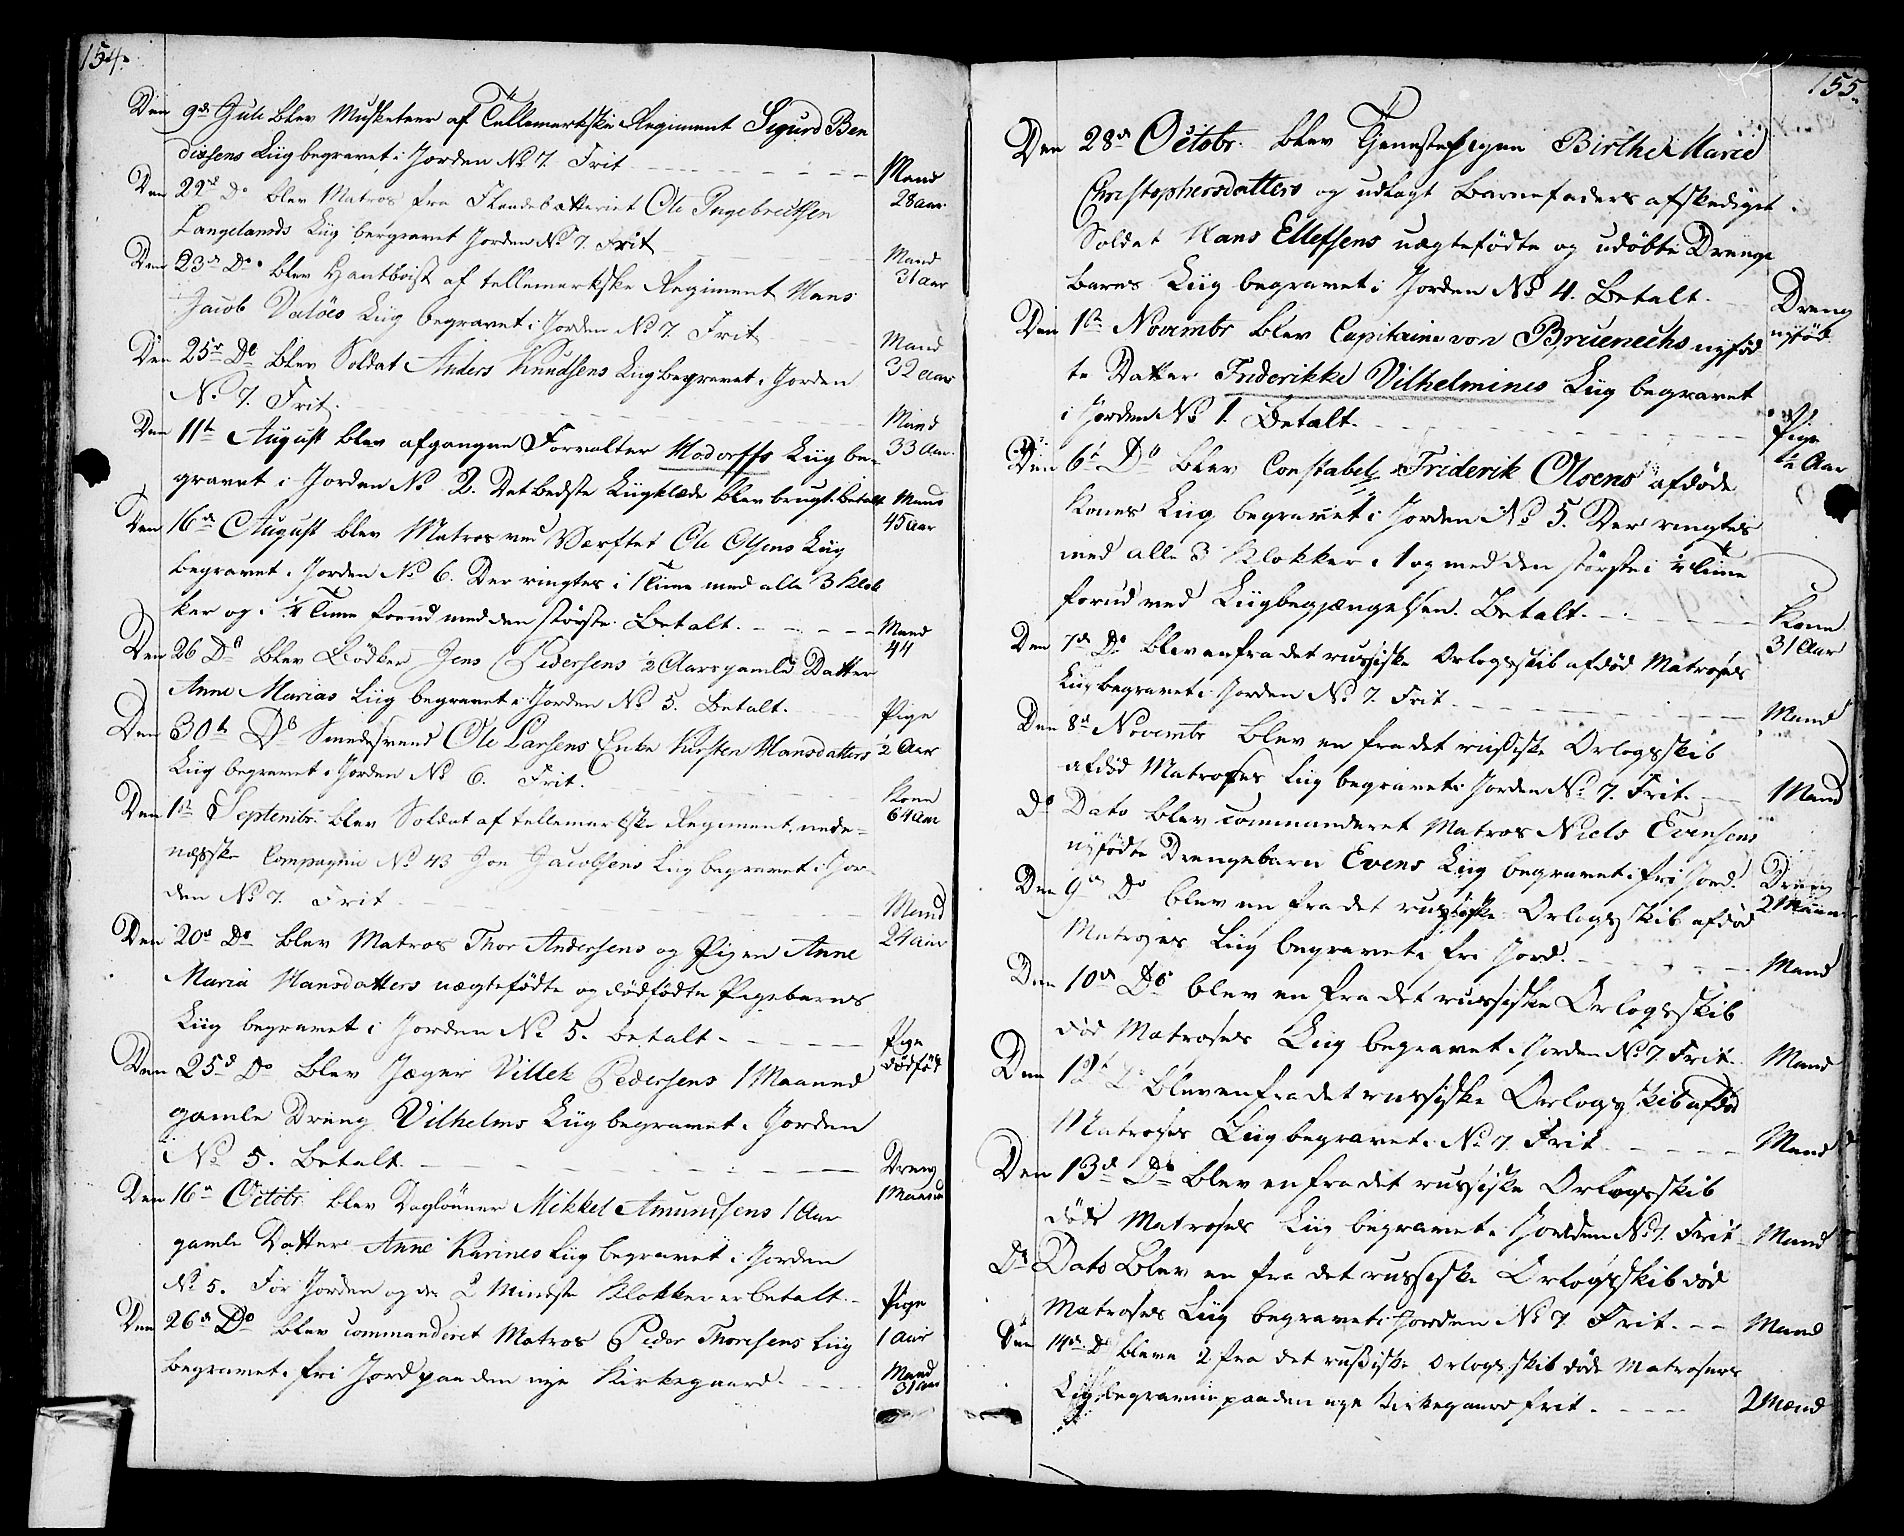 154.
Den 9de Juli blev Musketeer af Tellemarkske Regiment Sigurd Ben
dixsens Liig begravet i Jorden No 7. Frit
Mand
28 aar
Den 22de Do blev Matros fra Flaadebatteriet Ole Ingebrectsen
Langelands Liig bergravet Jorden No 7. Frit
Mand
31 aar
Den 23de Do blev Hautboist af tellemarkske Regiment Hans
Jacob Valöes Liig begravet i Jorden No 7. Frit
Mand
32 aar
Den 25de Do blev Soldat Anders Knudsens Liig begravet i Jorden
No 7. Frit.
Mand
33 Aar.
Den 11te August blev afgangne Forvalter Modorffs Liig be-
gravet i Jorden No 2. Det bedste Liigklæde blev brugt. betalt
Mand
45 aar
Den 16de August blev Matros ved Værftet Ole Olsens Liig
begravet i Jorden No 6. Der ringtes i 1 Time med alle 3 Klok
ker og i ¼ Time forud med den störste. Betalt.
Mand
44
Den 26 Do blev Bödker Jens Pedersens ½ Aars gamle Datter
Anne Marias Liig begravet i Jorden No 5. Betalt.
Pige
½ Aar
Den 30te Do Smedesvend Ole Larsens Enke Kirsten Hansdatters
Liig begravet i Jorden No 6. Frit.
Kone
64 aar
Den 1ste Septembr. blev Soldat af tellemarkske Regiment, nede-
næsske Compagnie No 43 Jon Jacobsens Liig begravet i Jor-
den No 7. Frit
Mand
24 aar
Den 20de Do blev Matros Thor Andersens og Pigen Anne
Maria Hansdatters uægtefödte og dödfödte Pigebarns
Liig begravet i Jorden No 5. betalt.
Pige
dödföd
Den 25de Do blev Jæger Villek Pedersens 1 Maaned
gamle Dreng Vilhelms Liig begravet i Jorden
No 5. betalt.
Dreng
1 Maaned
Den 16de Octobr blev Daglönner Mikkel Amundsens 1 Aar
gamle Datter Anne Karines Liig begravet i Jorden
No 5. For Jorden og de 2 Mindste Klokker er betalt.
Pige
1 Aar
Den 26de Do blev commanderet Matros Peder Thoresens Liig
begravet i fri Jord paa den nye Kirkegaard.
Mand
31 aar
155.
Den 28de Octobr. blev Tjenestepigen Birthe Marie
Christophersdatters og udlagt Barnefaders afskediget
Soldat Hans Ellefsens uægtefödte og udöbte Drenge
barns Liig begravet i Jorden No 4. Betalt.
Dreng
nyföd
Den 1ste Novembr blev Capitaine von Bruenechs nyföd
te Datter Friderikke Vilhelmines Liig begravet
i Jorden No 1. Betalt.
Pige
½ Aar
Den 6te Do blev Constabel Friderik Olsens afdöde
Kones Liig begravet i Jorden No 5. Der ringtes
med alle 3 Klokker i 1 og med den störste i ¼ Time
forud ved Liigbegjængelsen. Betalt.
Kone
31 Aar
Den 7de Do blev en fra det russiske Orlogsskib afdöd Matroses
Liig begravet i Jorden No 7. Frit
Mand
Den 8de Novembr blev en fra det russiske Orlogsskib
afdöd Matroses Liig begravet i Jorden No 7. Frit.
1 Mand
Do Dato blev commanderet Matros Niels Evensons
nyfödte Drengebarn Evens Liig begravet i fri Jord.
Dreng
Den 9de Do blev en fra det russiske Orlogsskib afdöd
Matroses Liig begravet i fri Jord.
Mand
Den 10de Do blev en fra det russiske Orlogsskib
död Matroses Liig begravet i Jorden No 7 Frit
Mand
Den 12te Do blev en fra det russiske Orlogsskib afdöd
Matroses Liig begravet i No 7. Frit
Mand
Den 13de Do blev en fra det russiske Orlogsskib
döde Matroses Liig begravet i Jorden No 7. Frit
Mand
Do Dato blev en fra det russiske Orlogsskib död
Matroses Liig begravet i Jorden No 7. Frit.
Mand
Den 14de Do bleve 2 fra det russiske Orlogsskib döde Matrosers
Liig begravne paa den nye Kirkegaard frit.
2 Mænd